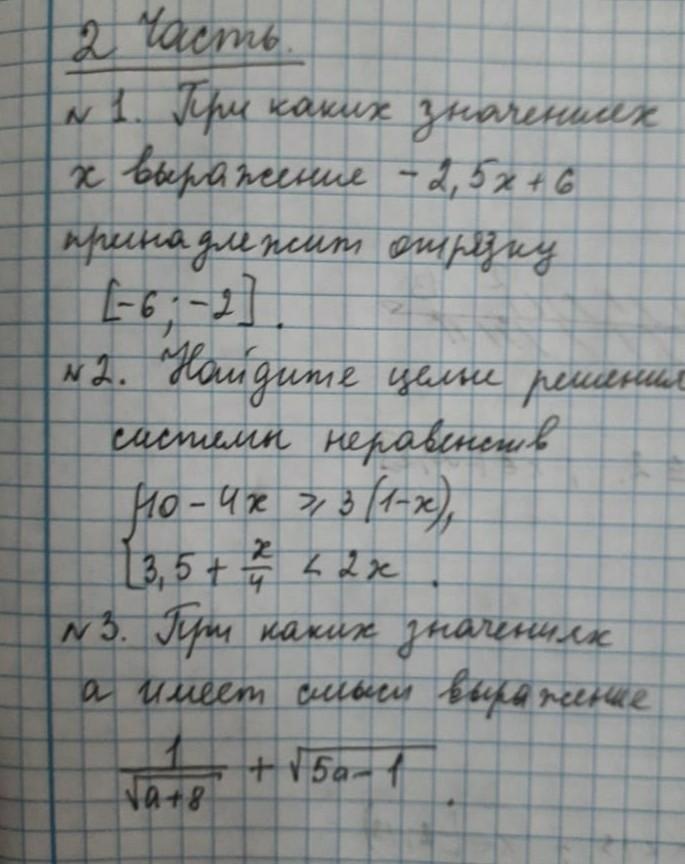 2 Часть.
№1. При каких значениях
x выражение -2,5x+6
принадлежит отрезку
[-6; -2].
№2. Найдите целые решения
системы неравенств
{10-4x ⩾ 3(1-x),
3,5 + x/4 < 2x.
№3. При каких значениях
a имеет смысл выражение
1/√(a+8) + √(5a-1).